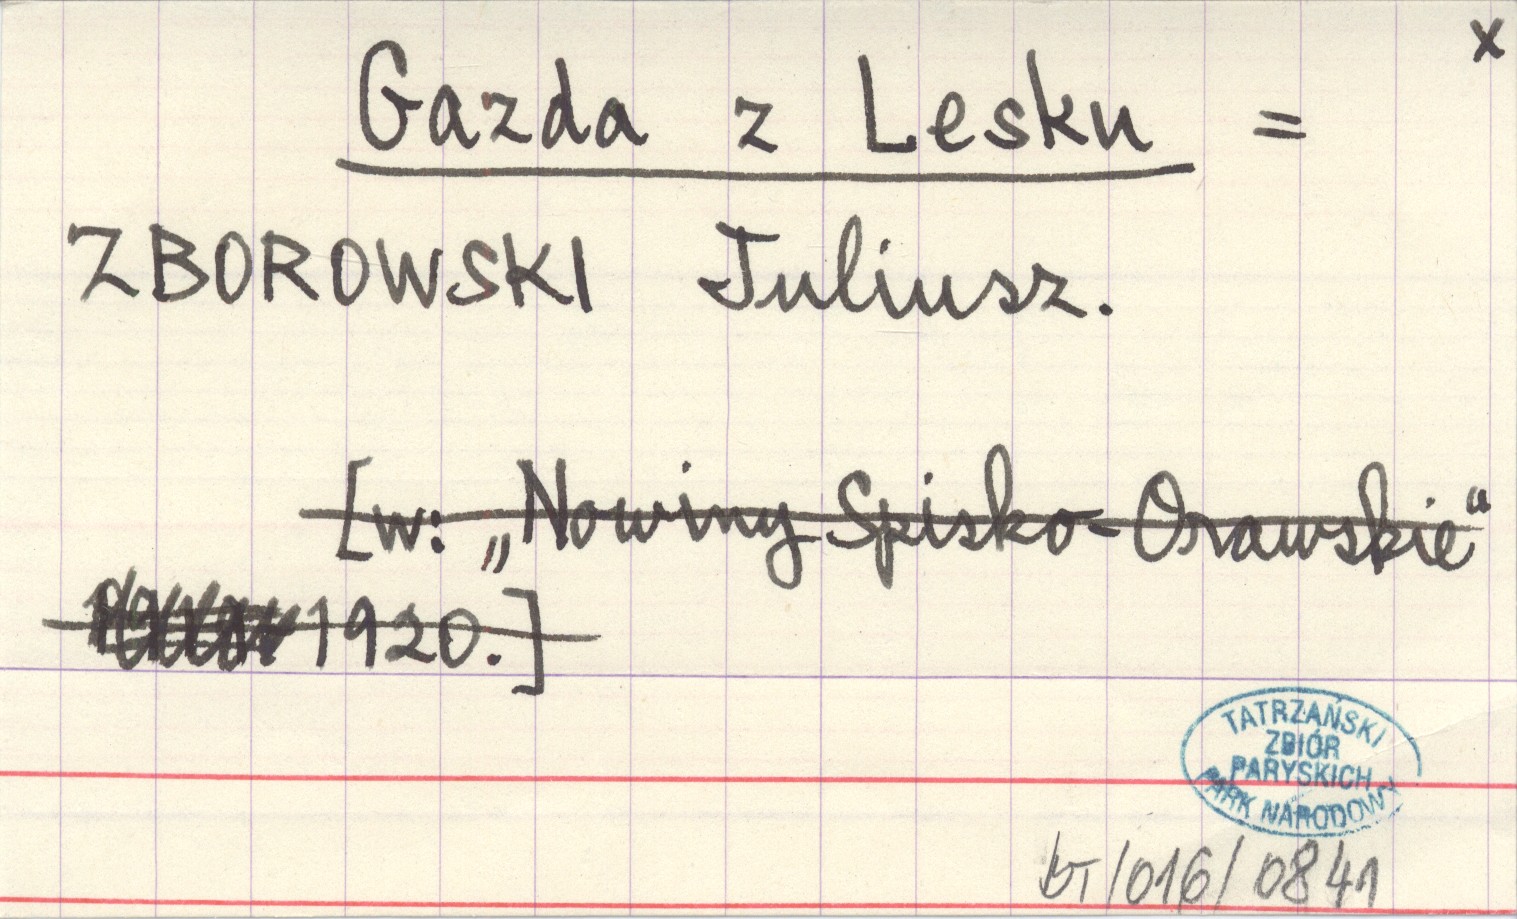 x
Gazda z Lesku =
ZBOROWSKI Juliusz.
[w: „Nowiny Spisko-Orawskie“
1920.]
TATRZAŃSKI
ZBIÓR
PARYSKICH
PARK NARODOWY
bT/016/0841